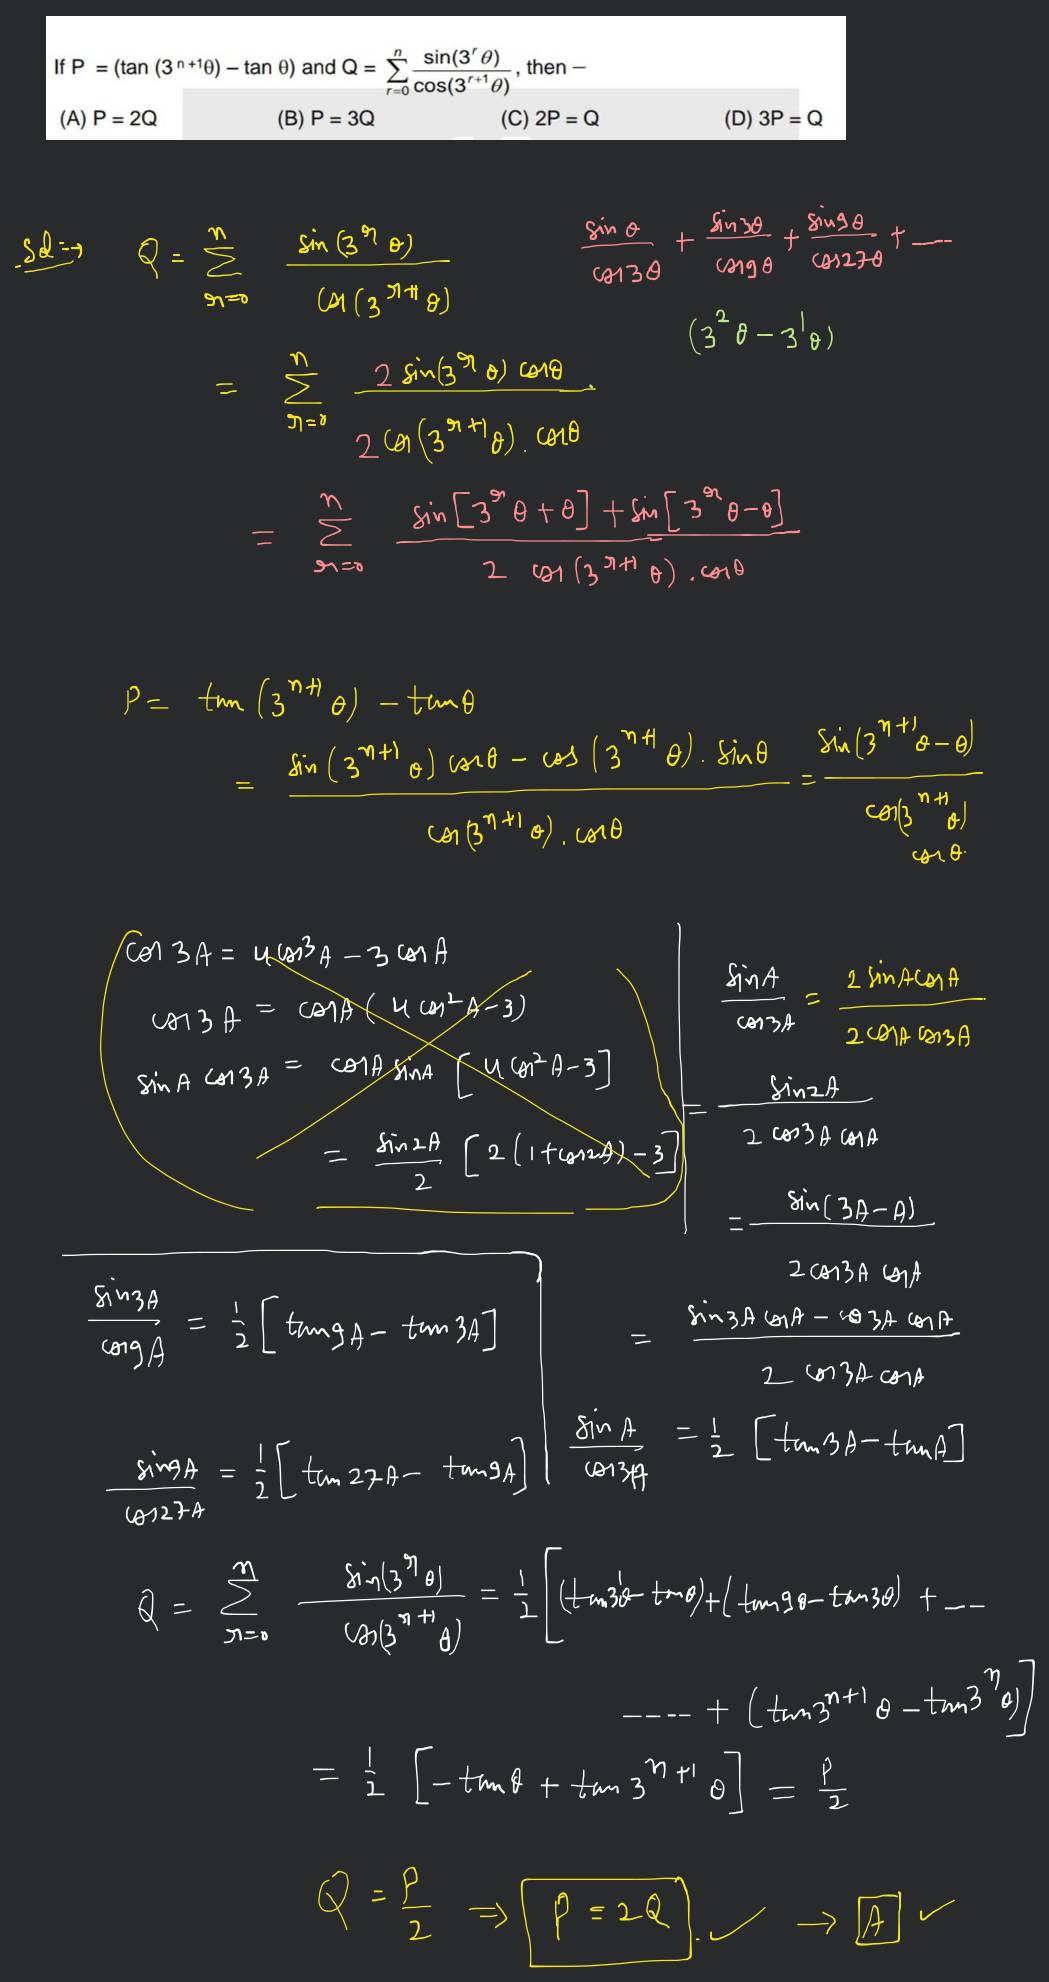 If P = (tan (3ⁿ⁺¹θ) – tan θ) and Q = Σ_{r=0}^{n} sin(3ʳ θ) / cos(3ʳ⁺¹ θ) , then –
(A) P = 2Q (B) P = 3Q (C) 2P = Q (D) 3P = Q
Sol :→ Q = Σ_{r=0}^{n} sin(3ʳ θ) / cos(3ʳ⁺¹ θ)
sin θ / cos 3θ + sin 3θ / cos 9θ + sin 9θ / cos 27θ + ----
(3² θ – 3¹ θ)
= Σ_{r=0}^{n} 2 sin(3ʳ θ) cos θ / 2 cos(3ʳ⁺¹ θ) . cos θ
= Σ_{r=0}^{n} sin [3ʳ θ + θ] + sin [3ʳ θ – θ] / 2 cos (3ʳ⁺¹ θ) . cos θ
P = tan (3ⁿ⁺¹ θ) – tan θ
= sin (3ⁿ⁺¹ θ) cos θ – cos (3ⁿ⁺¹ θ) . sin θ / cos (3ⁿ⁺¹ θ) . cos θ = sin (3ⁿ⁺¹ θ – θ) / cos(3ⁿ⁺¹ θ) cos θ.
cos 3A = 4 cos³ A – 3 cos A
cos 3A = cos A ( 4 cos² A – 3)
sin A cos 3A = cos A sin A [ 4 cos² A – 3]
= sin 2A / 2 [ 2 (1 + cos 2A) – 3]
sin A / cos 3A = 2 sin A cos A / 2 cos A cos 3A
= sin 2A / 2 cos 3A cos A
= sin( 3A – A) / 2 cos 3A cos A
= sin 3A cos A – cos 3A cos A / 2 cos 3A cos A
sin A / cos 3A = 1/2 [tan 3A – tan A]
sin 3A / cos 9A = 1/2 [ tan 9A – tan 3A ]
sin 9A / cos 27A = 1/2 [ tan 27A – tan 9A ]
Q = Σ_{r=0}^{n} sin(3ʳ θ) / cos(3ʳ⁺¹ θ) = 1/2 [ (tan 3¹θ – tan θ) + ( tan 9θ – tan 3θ) + ---
---- + (tan 3ⁿ⁺¹ θ – tan 3ⁿ θ) ]
= 1/2 [ – tan θ + tan 3ⁿ⁺¹ θ ] = P/2
Q = P/2 ⇒ P = 2Q . ✓ → A ✓